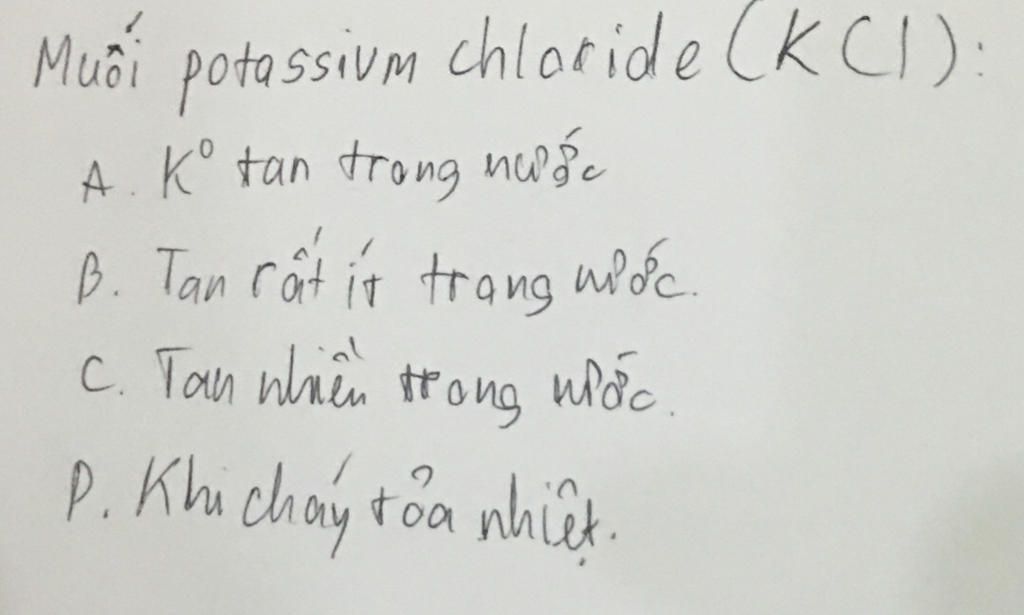 Muối potassium chloride (KCl):
A. K⁰ tan trong nước
B. Tan rất ít trong nước.
C. Tan nhiều trong nước.
D. Khi cháy tỏa nhiệt.